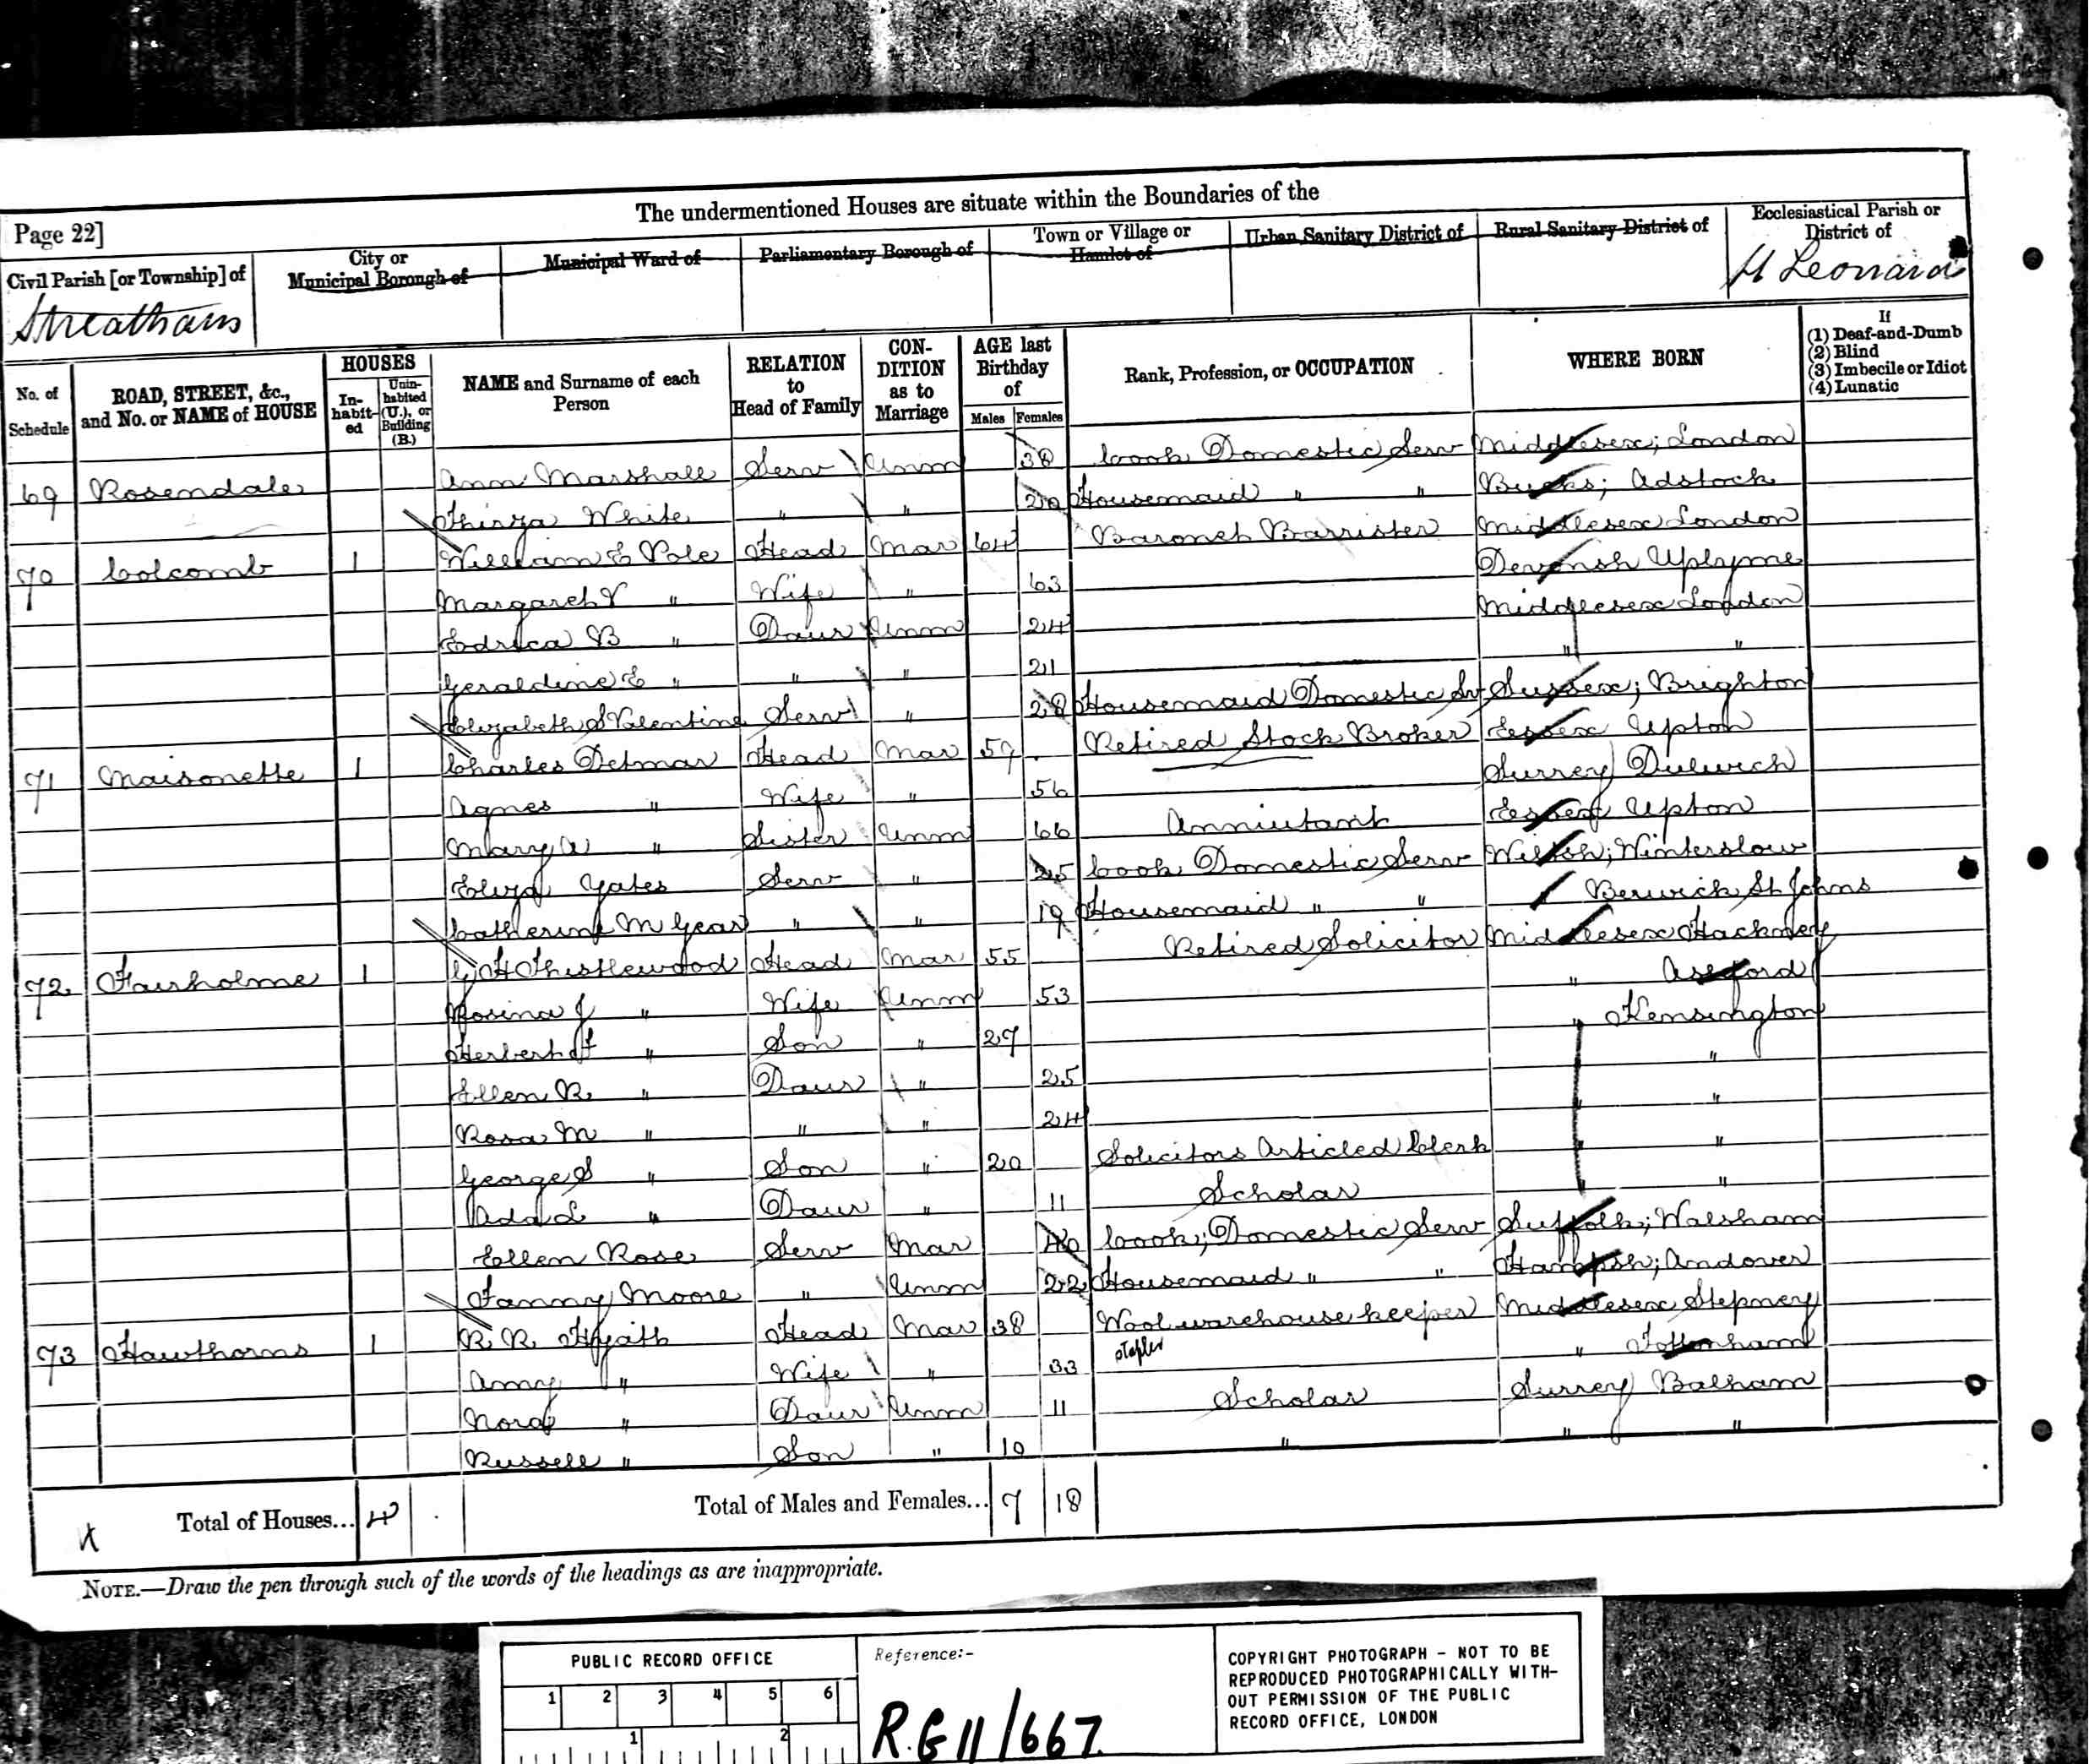 The undermentioned Houses are situate within the Boundaries of the
Page 22]
Civil Parish [or Township] of
Streatham
City or Municipal Borough of
Municipal Ward of
Parliamentary Borough of
Town or Village or Hamlet of
Urban Sanitary District of
Rural Sanitary District of
Ecclesiastical Parish or District of
St Leonard
No. of Schedule
ROAD, STREET, &c., and No. or NAME of HOUSE
HOUSES
In-habit-ed
Unin-habited (U.), or Building (B.)
NAME and Surname of each Person
RELATION to Head of Family
CON-DITION as to Marriage
AGE last Birthday of
Males Females
Rank, Profession, or OCCUPATION
WHERE BORN
If
(1) Deaf-and-Dumb
(2) Blind
(3) Imbecile or Idiot
(4) Lunatic
69 Rosendale Ann Marshall Serv Unm 38 Cook Domestic Serv Middlesex; London
Thirza White " " 20 Housemaid " " Bucks; Adstock
70 Colcomb 1 William E Pole Head Mar 64 Baronet Barrister Middlesex London
Margaret V " Wife " 63 Devonsh Uplyme
Edrica B " Daur Unm 24 Middlesex London
Geraldine E " " " 21 " "
Elizabeth S Valentine Serv " 28 Housemaid Domestic Sv Sussex; Brighton
71 Maisonette 1 Charles Detmar Head Mar 59 Retired Stock Broker Essex Upton
Agnes " Wife " 56 Surrey Dulwich
Mary A " Sister Unm 66 Anniutant Essex Upton
Eliza Yates Serv " 25 Cook Domestic Serv Wiltsh; Winterslow
Catherine M Gear " " 19 Housemaid " " Berwick St Johns
72 Fairholme 1 G H Thistlewood Head Mar 55 Retired Solicitor Middlesex Hackney
Rosina J " Wife Unm 53 " Ashford
Herbert " Son " 27 " Kensington
Ellen R. " Daur " 25 "
Rosa M " " " 24 "
George S " Son " 20 Solicitors Articled Clerk "
Ada L " Daur " 11 Scholar "
Ellen Rose Serv Mar 40 Cook; Domestic Serv Suffolk; Walsham
Fanny Moore " Unm 22 Housemaid " " Hampsh; Andover
73 Hawthorns 1 R. R. Head Mar 38 Wool warehouse keeper Middlesex Stepney
stapler
Amy " Wife " 33 " Tottenham
Nora " Daur Unm 11 Scholar Surrey Balham
Russell " Son " 10 " " "
Total of Houses... 4
Total of Males and Females... 7 18
NOTE.—Draw the pen through such of the words of the headings as are inappropriate.
PUBLIC RECORD OFFICE
1 2 3 4 5 6
1 2
Reference:-
R.G 11/667.
COPYRIGHT PHOTOGRAPH - NOT TO BE
REPRODUCED PHOTOGRAPHICALLY WITH-
OUT PERMISSION OF THE PUBLIC
RECORD OFFICE, LONDON